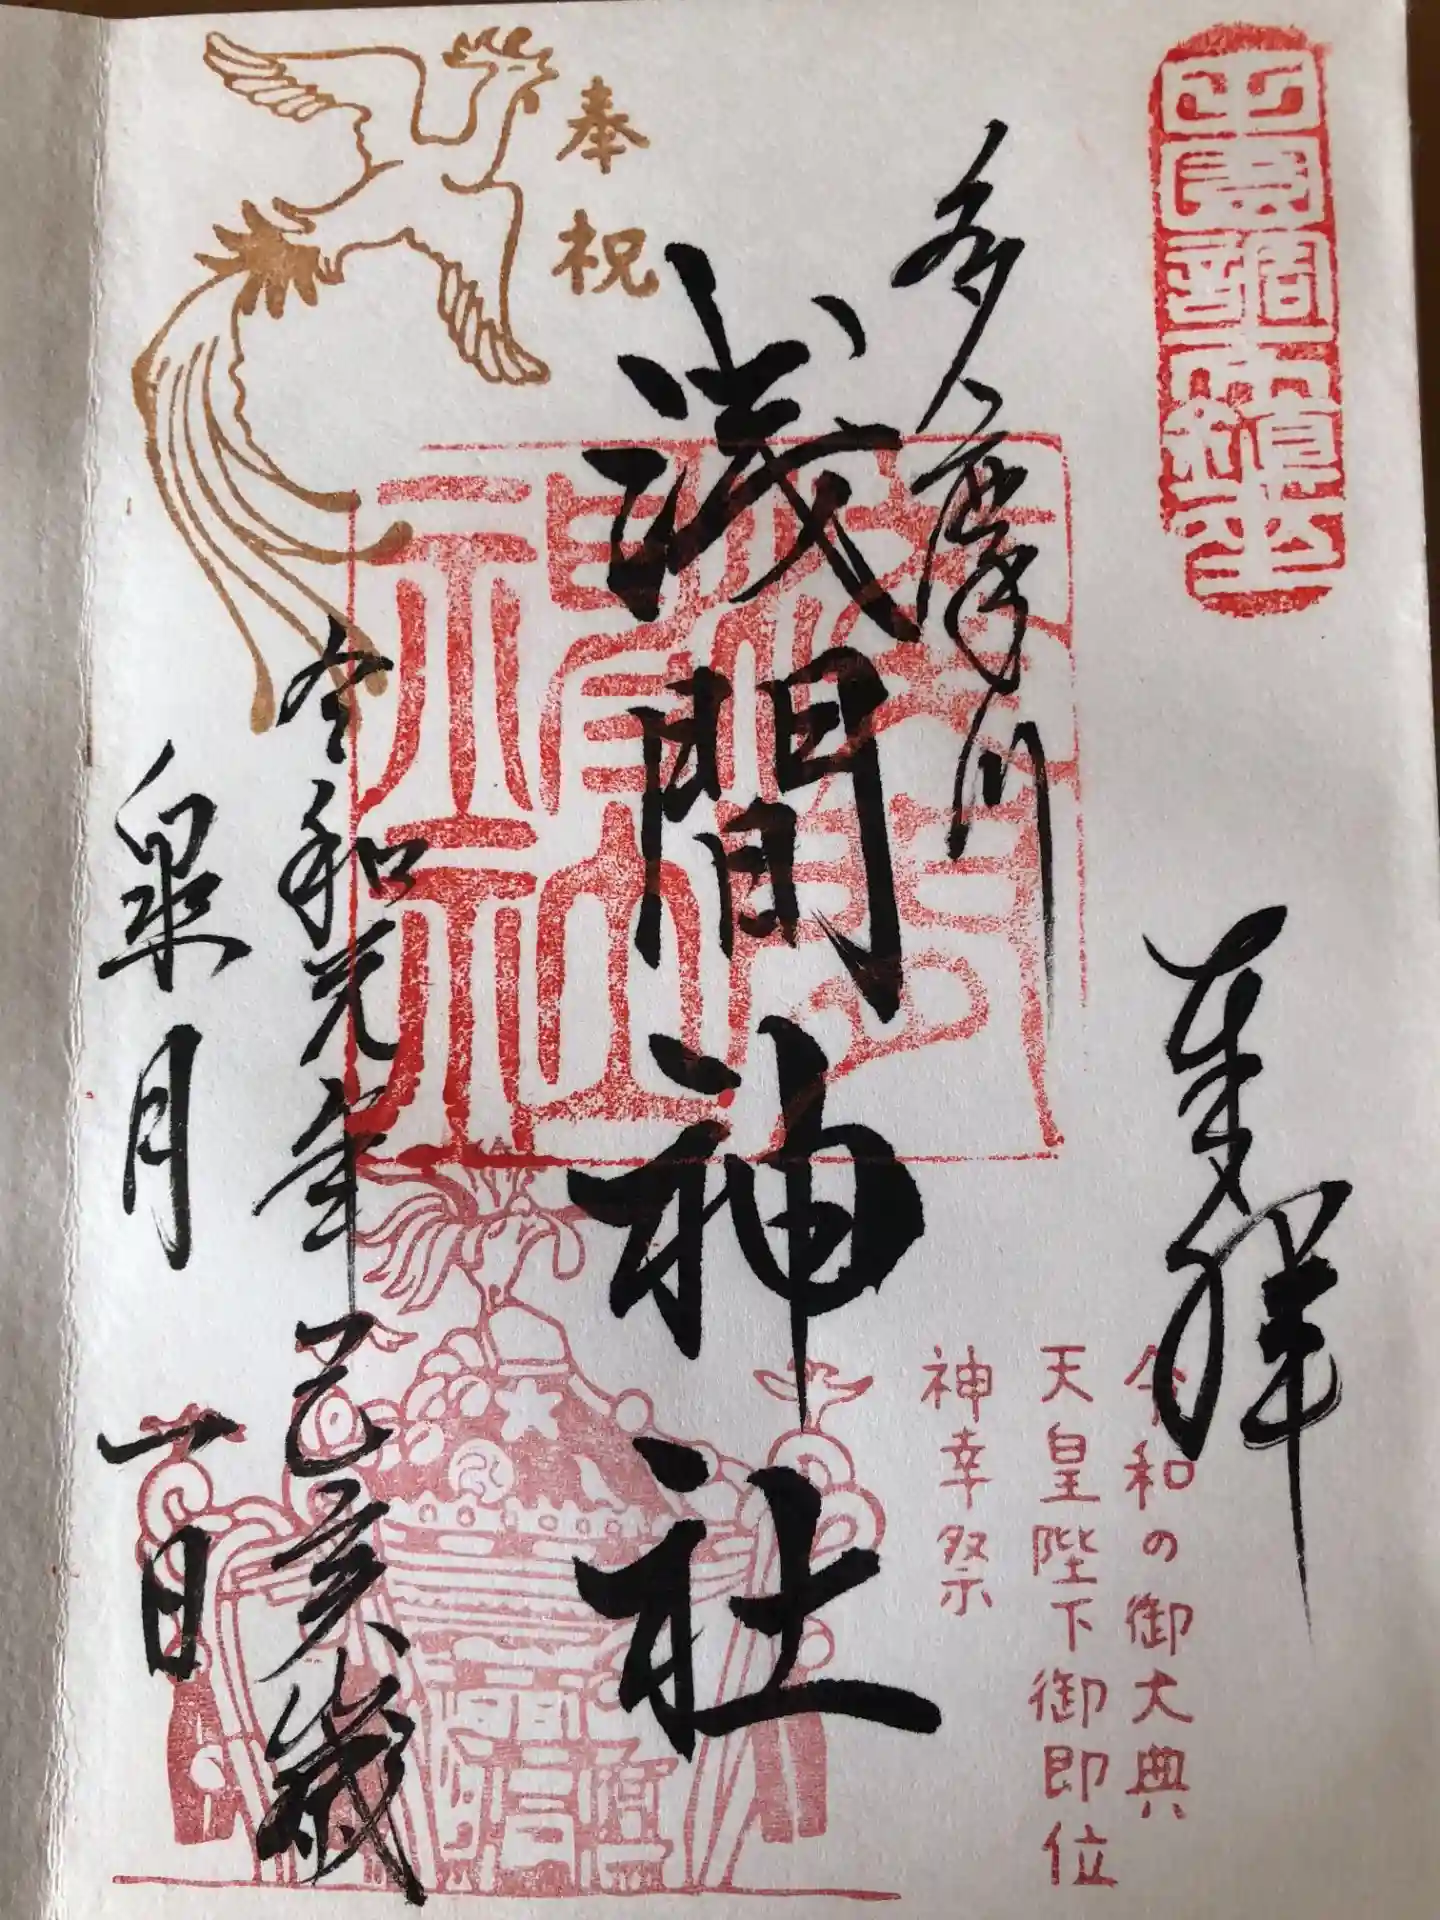 田園調布鎮座
奉拝
令和の御大典
天皇陛下御即位
神幸祭
多摩川
浅間神社
奉祝
令和元年己亥歳
皐月一日